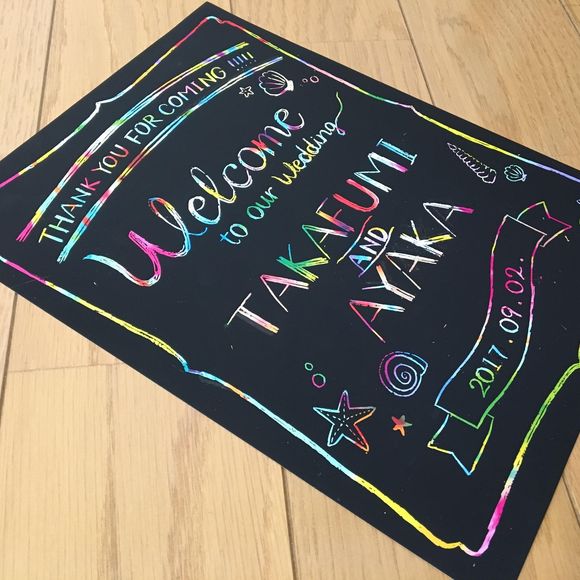 THANK YOU FOR COMING !!!!!
Welcome
to our Wedding
TAKAFUMI
AND
AYAKA
2017.09.02.